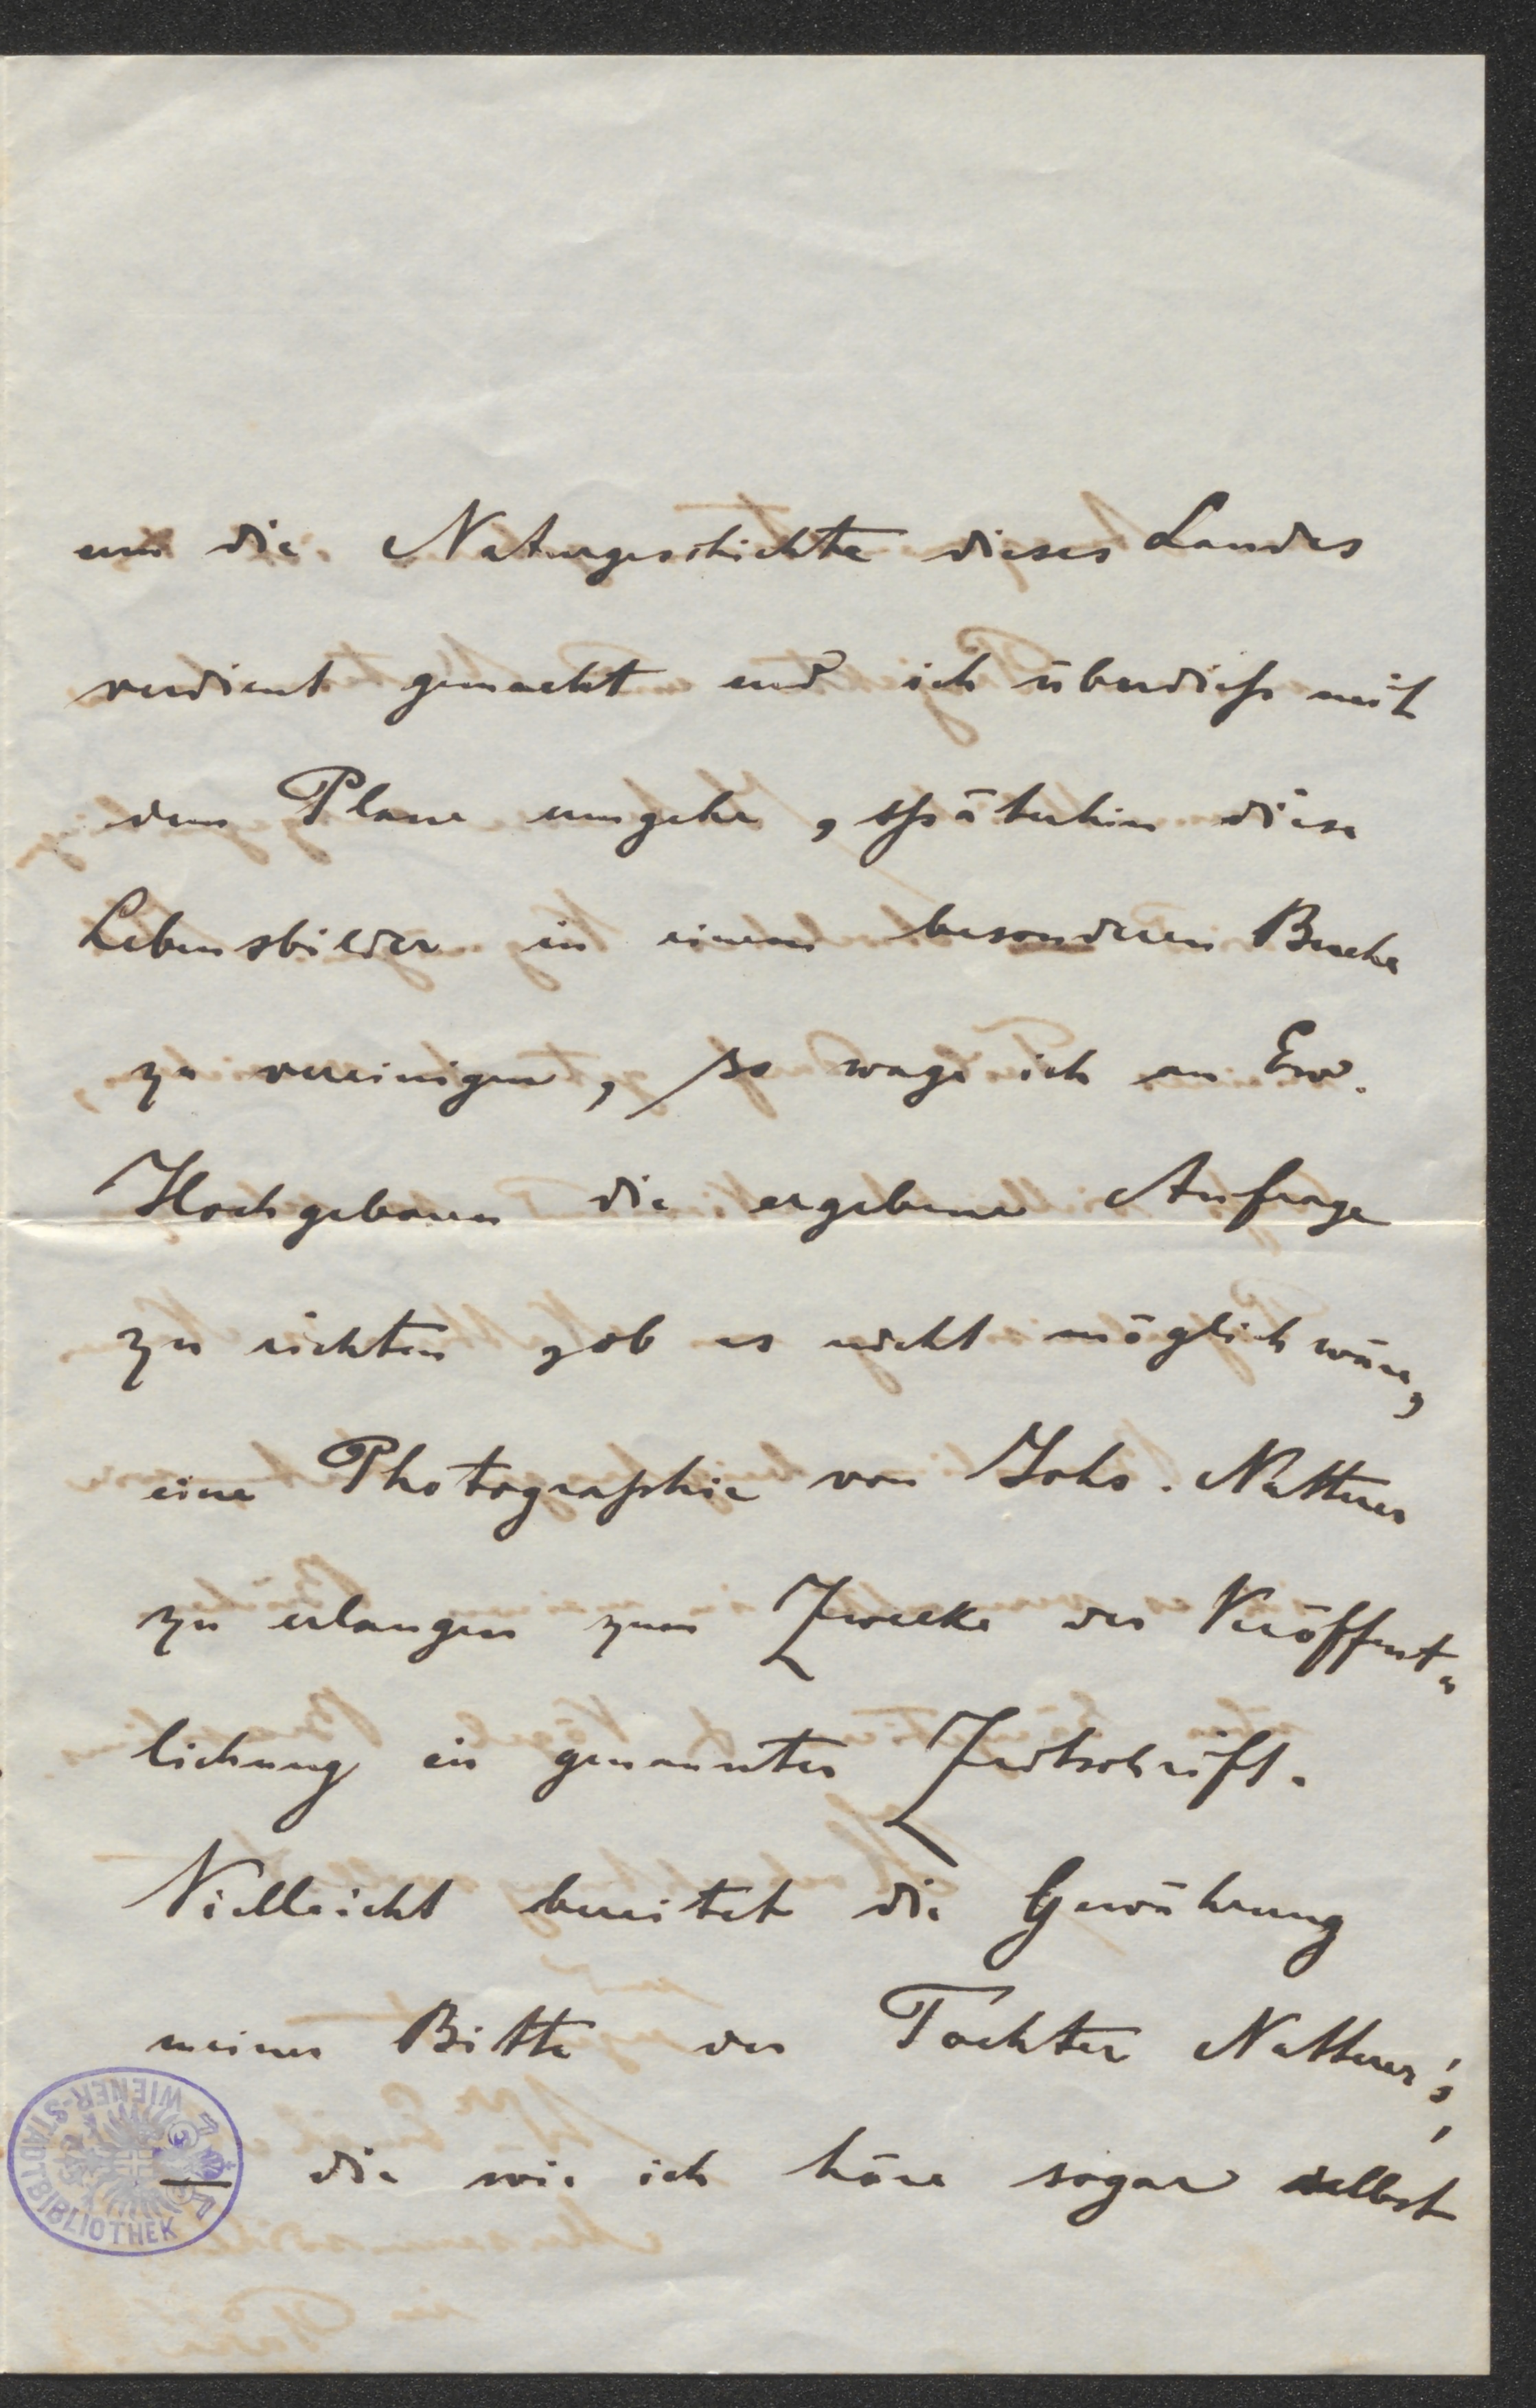 um die Naturgeschichte dieses Landes
verdient gemacht und ich überdieß mit
dem Plane umgehe, späterhin diese
Lebensbilder in einem besonderen Buche
zu vereinigen, so wage ich an Ew.
Hochgeboren die ergebene Anfrage
zu richten, ob es nicht möglich wäre,
eine Photographie von Johs. Natterer
zu erlangen zum Zwecke der Veröffent-
lichung in genannter Zeitschrift.
Vielleicht bereitet die Gewährung
meiner Bitte der Tochter Natterer's,
— die wie ich höre sogar selbst
WIENER-STADTBIBLIOTHEK